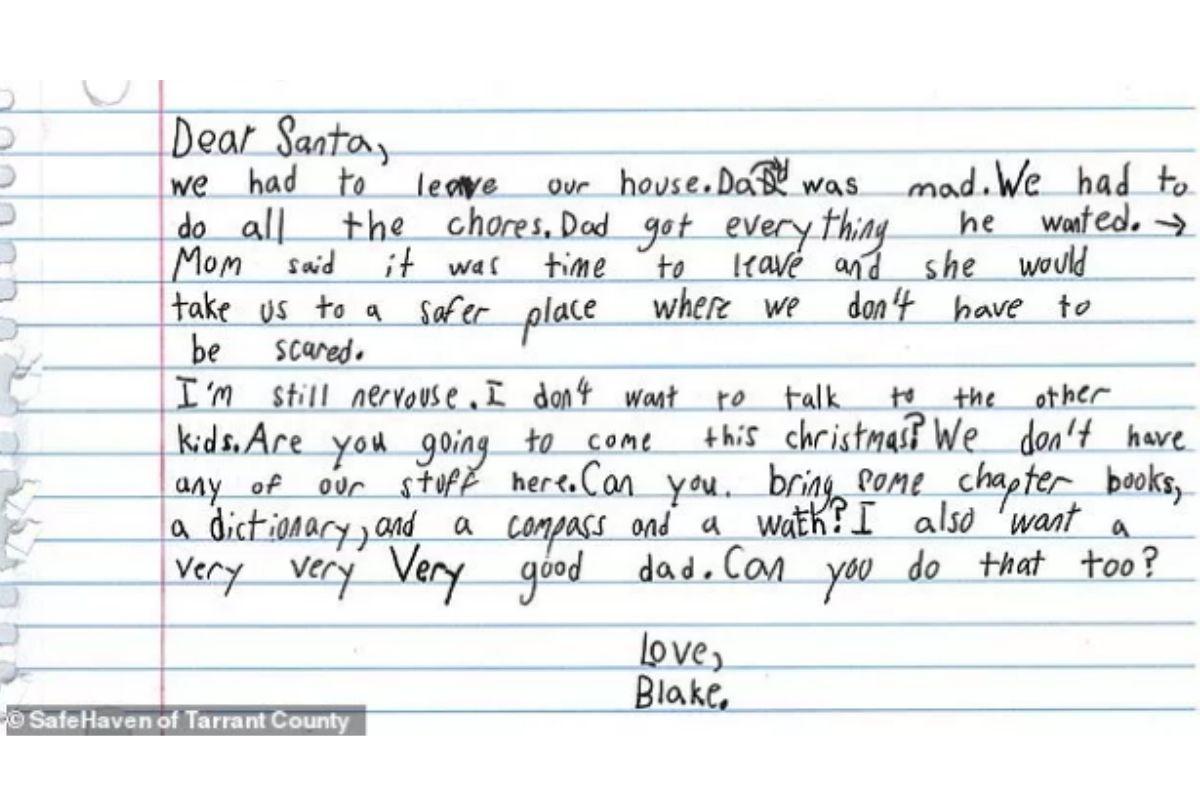 Dear Santa,
we had to leave our house. Dad was mad. We had to
do all the chores. Dad got everything he wanted. →
Mom said it was time to leave and she would
take us to a safer place where we don't have to
be scared.
I'm still nervouse. I don't want to talk to the other
kids. Are you going to come this christmas? We don't have
any of our stuff here. Can you. bring some chapter books,
a dictionary, and a compass and a wath? I also want a
very very Very good dad. Can you do that too?
Love,
Blake.
© SafeHaven of Tarrant County